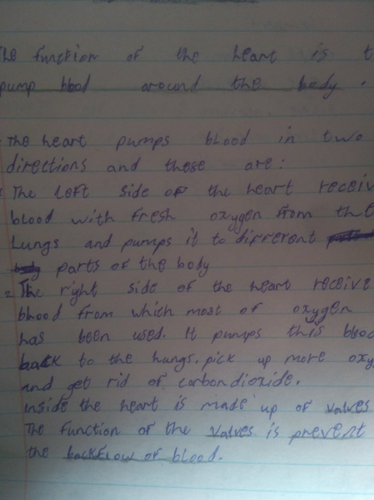 The function of the heart is t
pump blood around the body.
The heart pumps blood in two
directions and these are:
The left side of the heart receiv
blood with fresh oxygen from the
Lungs and pumps it to different
parts of the body
The right side of the heart receive
blood from which most of oxygen
has been used. It pumps this blood
back to the hungs. pick up more oxy
and get rid of carbondioxide.
inside the heart is made up of valves
The function of the valves is prevent
the backflow of blood.